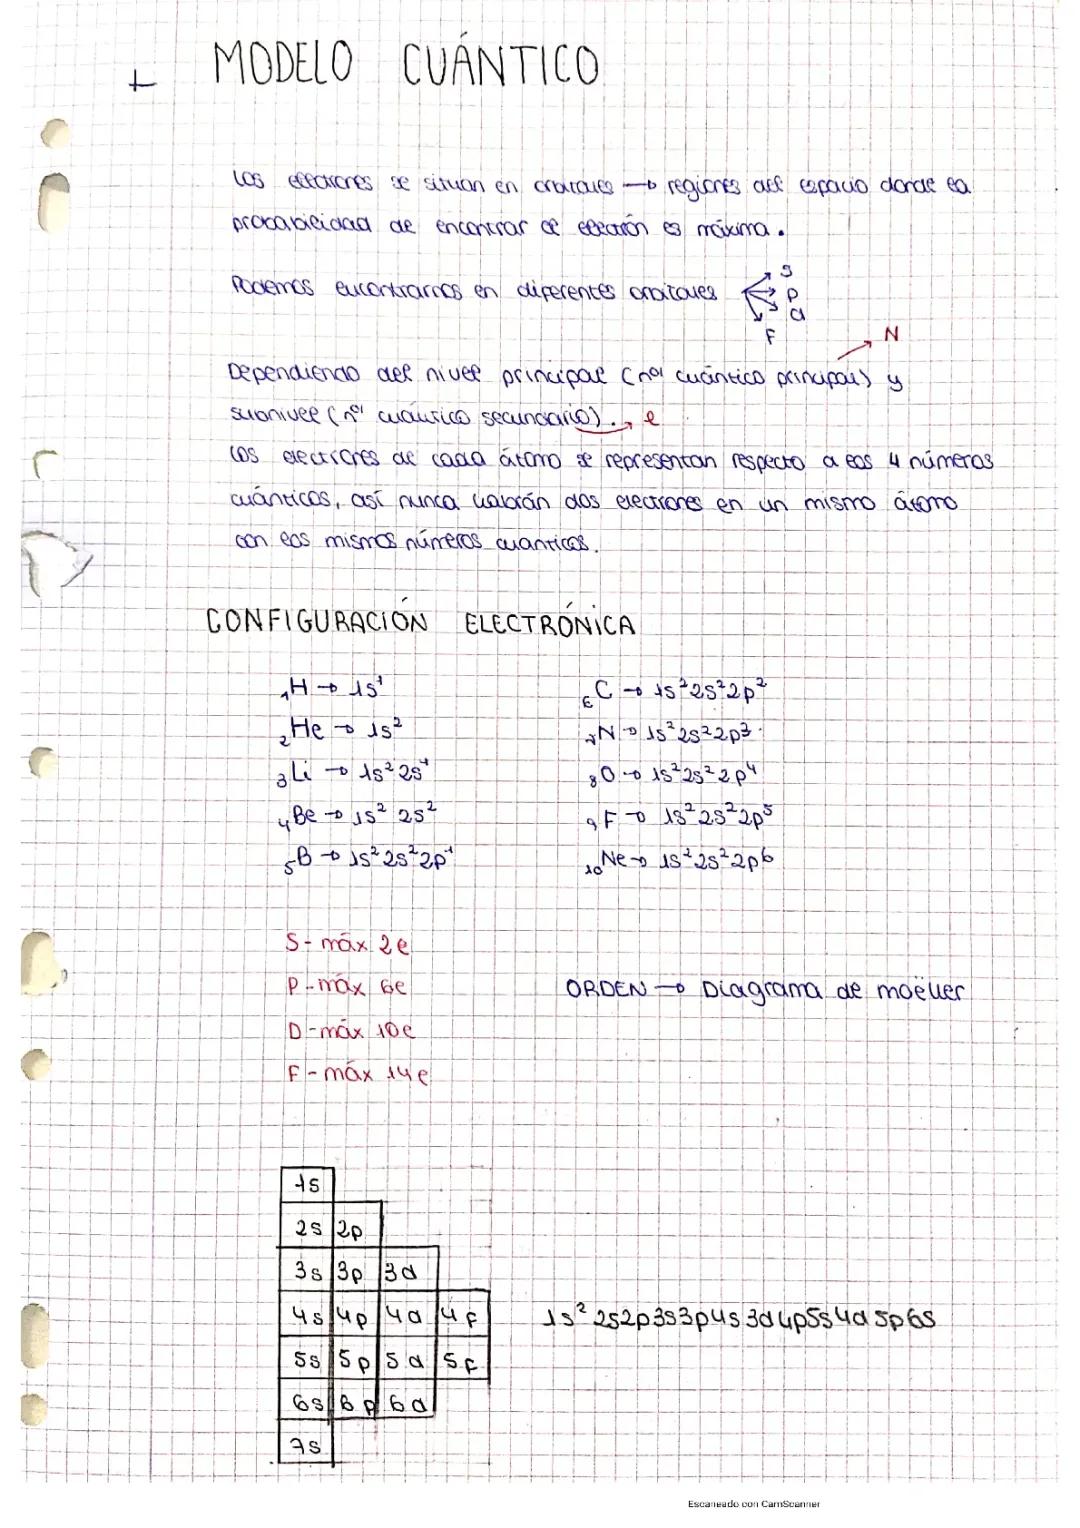 MODELO CUÁNTICO
Los electrones se situan en orbitales → regiones del espacio donde la
probabilidad de encontrar el electrón es máxima.
Podemos encontrarnos en diferentes orbitales
S
P
d
F
N
Dependiendo del nivel principal (nº cuántico principal) y
subnivel (nº cuántico secundario). → l
Los electrones de cada átomo se representan respecto a los 4 números
cuánticos, así nunca habrán dos electrones en un mismo átomo
con los mismos números cuanticos.
CONFIGURACIÓN ELECTRÓNICA
₁H → 1s¹
₂He → 1s²
₃Li → 1s² 2s¹
₄Be → 1s² 2s²
₅B → 1s² 2s² 2p¹
₆C → 1s² 2s² 2p²
₇N → 1s² 2s² 2p³
₈O → 1s² 2s² 2p⁴
₉F → 1s² 2s² 2p⁵
₁₀Ne → 1s² 2s² 2p⁶
S - máx 2e
P - máx 6e
D - máx 10e
F - máx 14e
ORDEN → Diagrama de moëller
1s
2s 2p
3s 3p 3d
4s 4p 4d 4f
5s 5p 5d 5f
6s 6p 6d
7s
1s² 2s2p3s3p4s3d4p5s4d5p6s
Escaneado con CamScanner